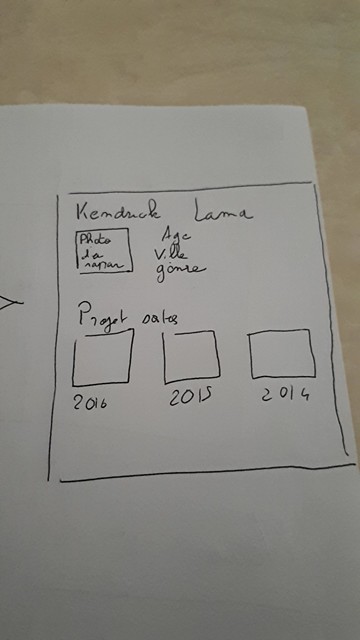 Kendrick Lama
Photo
du
rappeur
Age
Ville
genre
Projet sortis
2016 2015 2014